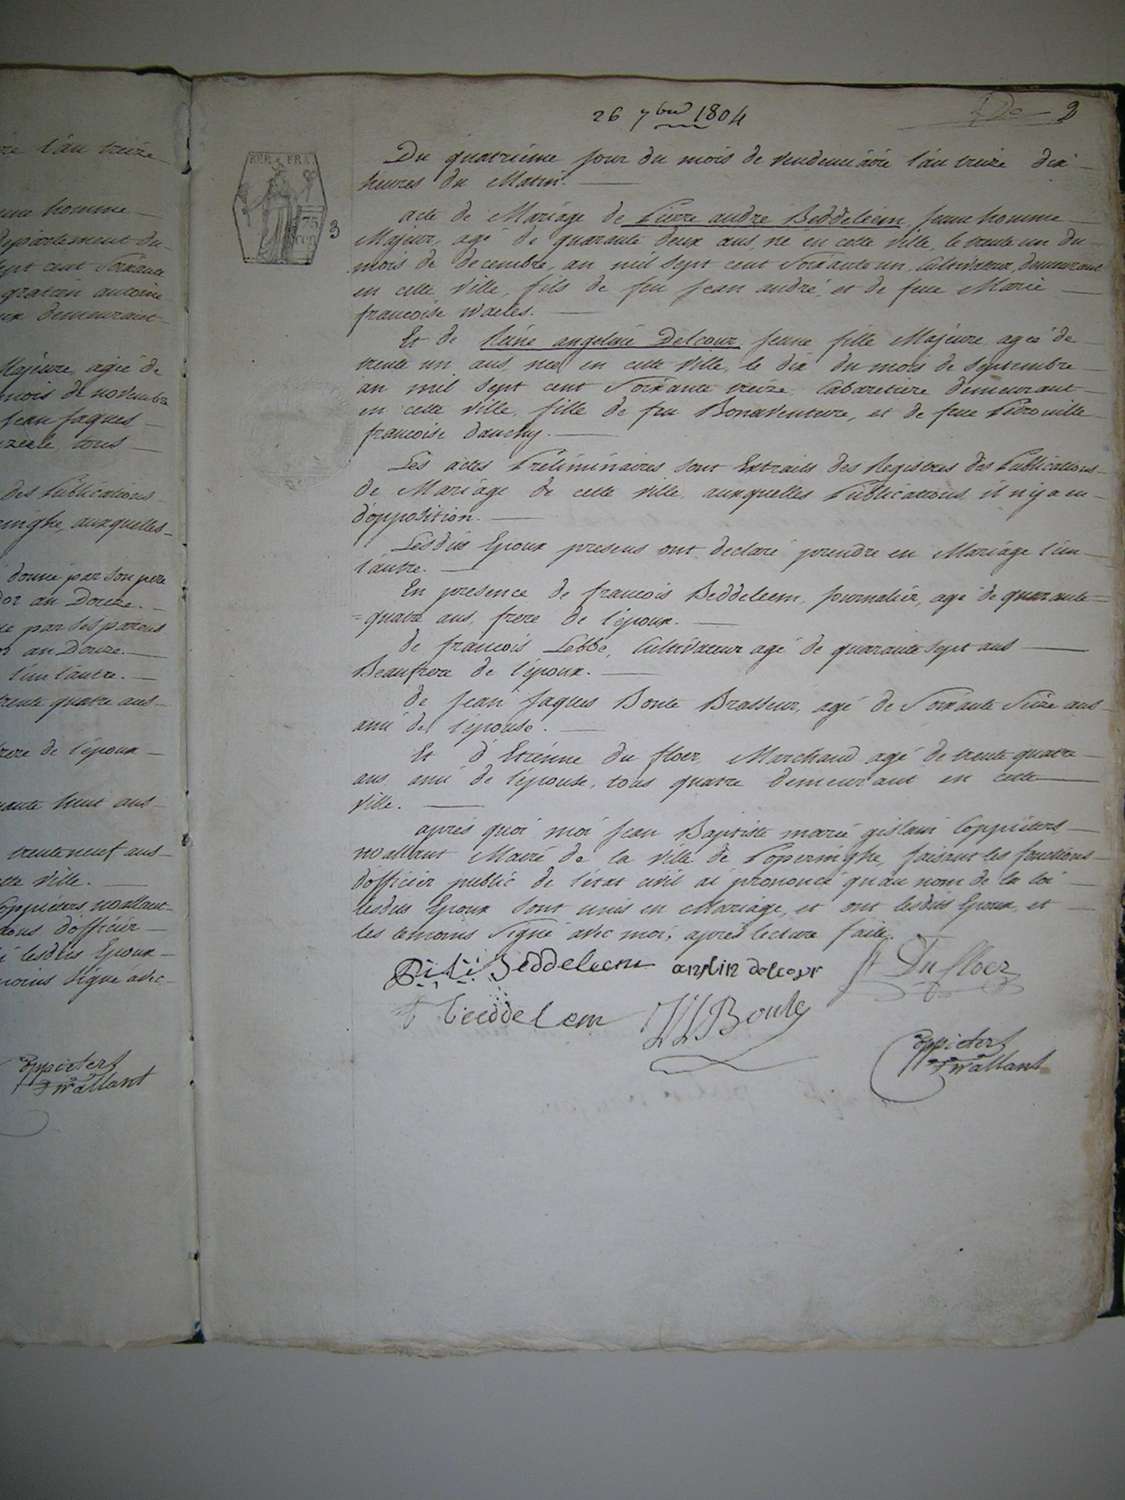 26 7bre 1804
3
REP. FRA.
75 CEN
3
Du quatriéme jour du mois de vendemiaire l'an treize dix
heures du Matin. —
acte de Mariage de Pierre andré Beddeleem, jeune homme
Majeur, agé de quarante deux ans, né en cette ville, le trente un du
mois de decembre, an mil sept cent Soixante un, Cultivateur, demeurant
en cette ville, fils de feu jean andré, et de feue Marie
francoise Waeles. —
Et de Reine angeline Delcour, jeune fille Majeure, agée de
trente un ans, née en cette ville, le dix du mois de Septembre
an mil sept cent Soixante treize, Cabaretiere demeurant
en cette ville, fille de feu Bonaventure, et de feue Petronille
francoise dauchy. —
Les actes Préliminaires sont Extraits des Registres des Publications
de Mariage de cette ville, auxquelles Publications, il n'y a eu
d'opposition. —
Lesdits Epoux presens ont declaré prendre en Mariage l'un
l'autre. —
En presence de francois Beddeleem, journalier, agé de quarante
=quatre ans, frere de l'époux. —
de francois Lebbe, Cultivateur agé de quarante sept ans —
Beaufrere de l'époux. —
de jean jaques Boute Brasseur, agé de Soixante Seize ans
ami de l'épouse. —
Et d'Etienne du floer, Marchand agé de trente quatre
ans ami de l'épouse, tous quatre demeurant en cette
ville. —
après quoi moi jean Baptiste marie gislain Coppieters
wallant Maire de la ville de Poperinghe, faisant les fonctions
d'officier public de l'état civil ai prononcé qu'au nom de la loi
lesdits Epoux sont unis en Mariage, et ont lesdits Epoux, et
les temoins Signé avec moi, après lecture faite.
Beddeleem angelin delcour Du floer
Beddelem Boute
Coppieters
wallant
l'an treize
jeune homme
departement du
sept cent Soixante
antoine
demeurant
Majeure, agée de
mois de novembre
jean jaques
tous
des Publications
auxquelles
donné par son pere
an Douze. —
par ses parens
an Douze. —
l'un l'autre. —
trente quatre ans
frere de l'époux —
huit ans
trente neuf ans
cette ville. —
Coppieters wallant
d'officier
lesdits Epoux
temoins signé avec
Coppieters
wallant